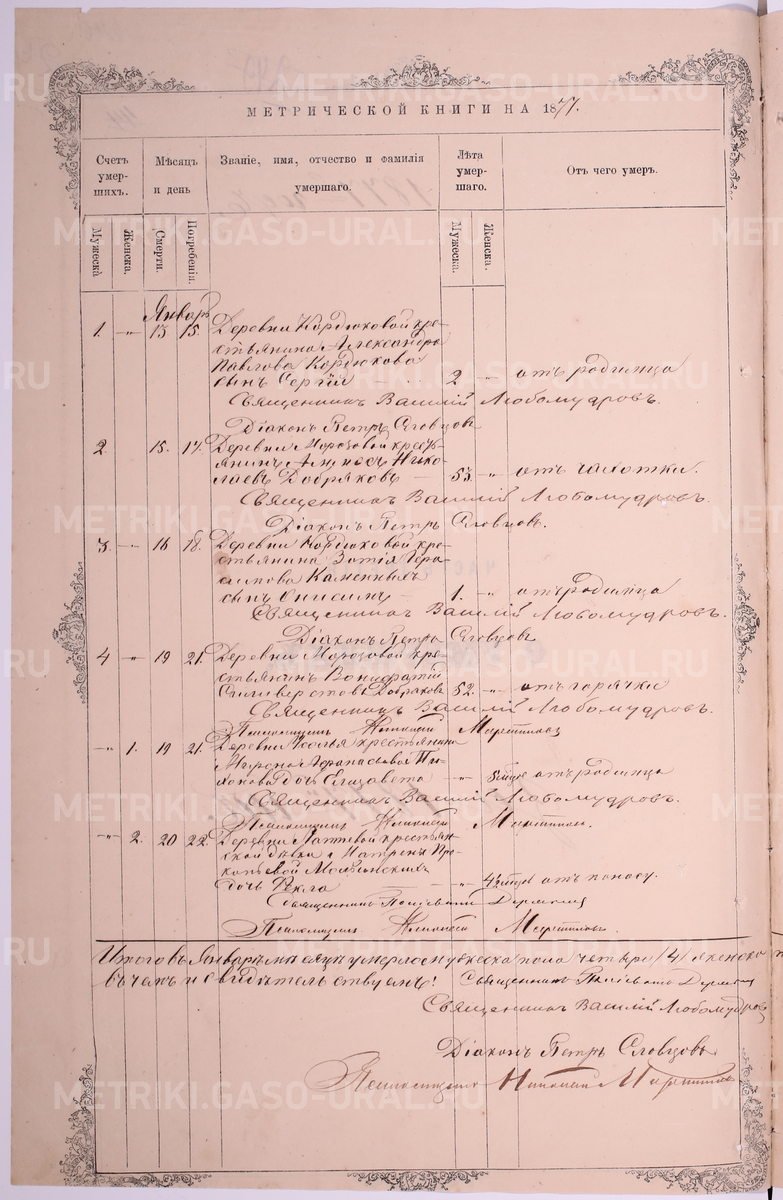 МЕТРИЧЕСКОЙ КНИГИ НА 1877.
Счетъ умершихъ.
Мѣсяцъ и день
Званіе, имя, отчество и фамилія умершаго.
Лѣта умершаго.
Отъ чего умеръ.
Мужеска
Женска.
Смерти.
Погребенія.
Мужеска.
Женска.
Январь
1. „ 13 15. Деревни Кордюковой кре-
стьянина Александра
Павлова Кордюкова
сынъ Сергій 2 „ отъ родимца
Священникъ Василій Любомудровъ.
Діаконъ Петръ Словцовъ
2. 15. 17. Деревни Морозовой кресть-
янинъ Нико-
лаевъ Добряковъ 53. „ отъ чахотки.
Священникъ Василій Любомудровъ.
Діаконъ Петръ Словцовъ.
3 „ 16 18. Деревни Кордюковой кре-
стьянина Зотія Гера-
симова Каменныхъ
сынъ Онисимъ 1. „ отъ родимца
Священникъ Василій Любомудровъ.
Діаконъ Петръ Словцовъ
4 „ 19 21. Деревни Морозовой кре-
стьянинъ Вонифатій
Силиверстовъ Добряковъ 52. „ отъ горячки
Священникъ Василій Любомудровъ.
Псаломщикъ Николай
„ 1. 19 21. Деревни крестьянина
Мирона Афанасьева
дочь Елизавета „ отъ родимца
Священникъ Василій Любомудровъ.
Псаломщикъ Николай
„ 2. 20 22. Деревни крестьян-
ской дѣвки Матрены Про-
копьевой
дочь Ѳекла „ отъ поносу.
Священникъ
Псаломщикъ Николай
Итого въ Январѣ мѣсяцѣ умерло мужеска пола четыре /4/ женска
въ чемъ и свидѣтельствуемъ: Священникъ
Священникъ Василій Любомудровъ
Діаконъ Петръ Словцовъ
Псаломщикъ Николай
METRIKI.GASO-URAL.RU